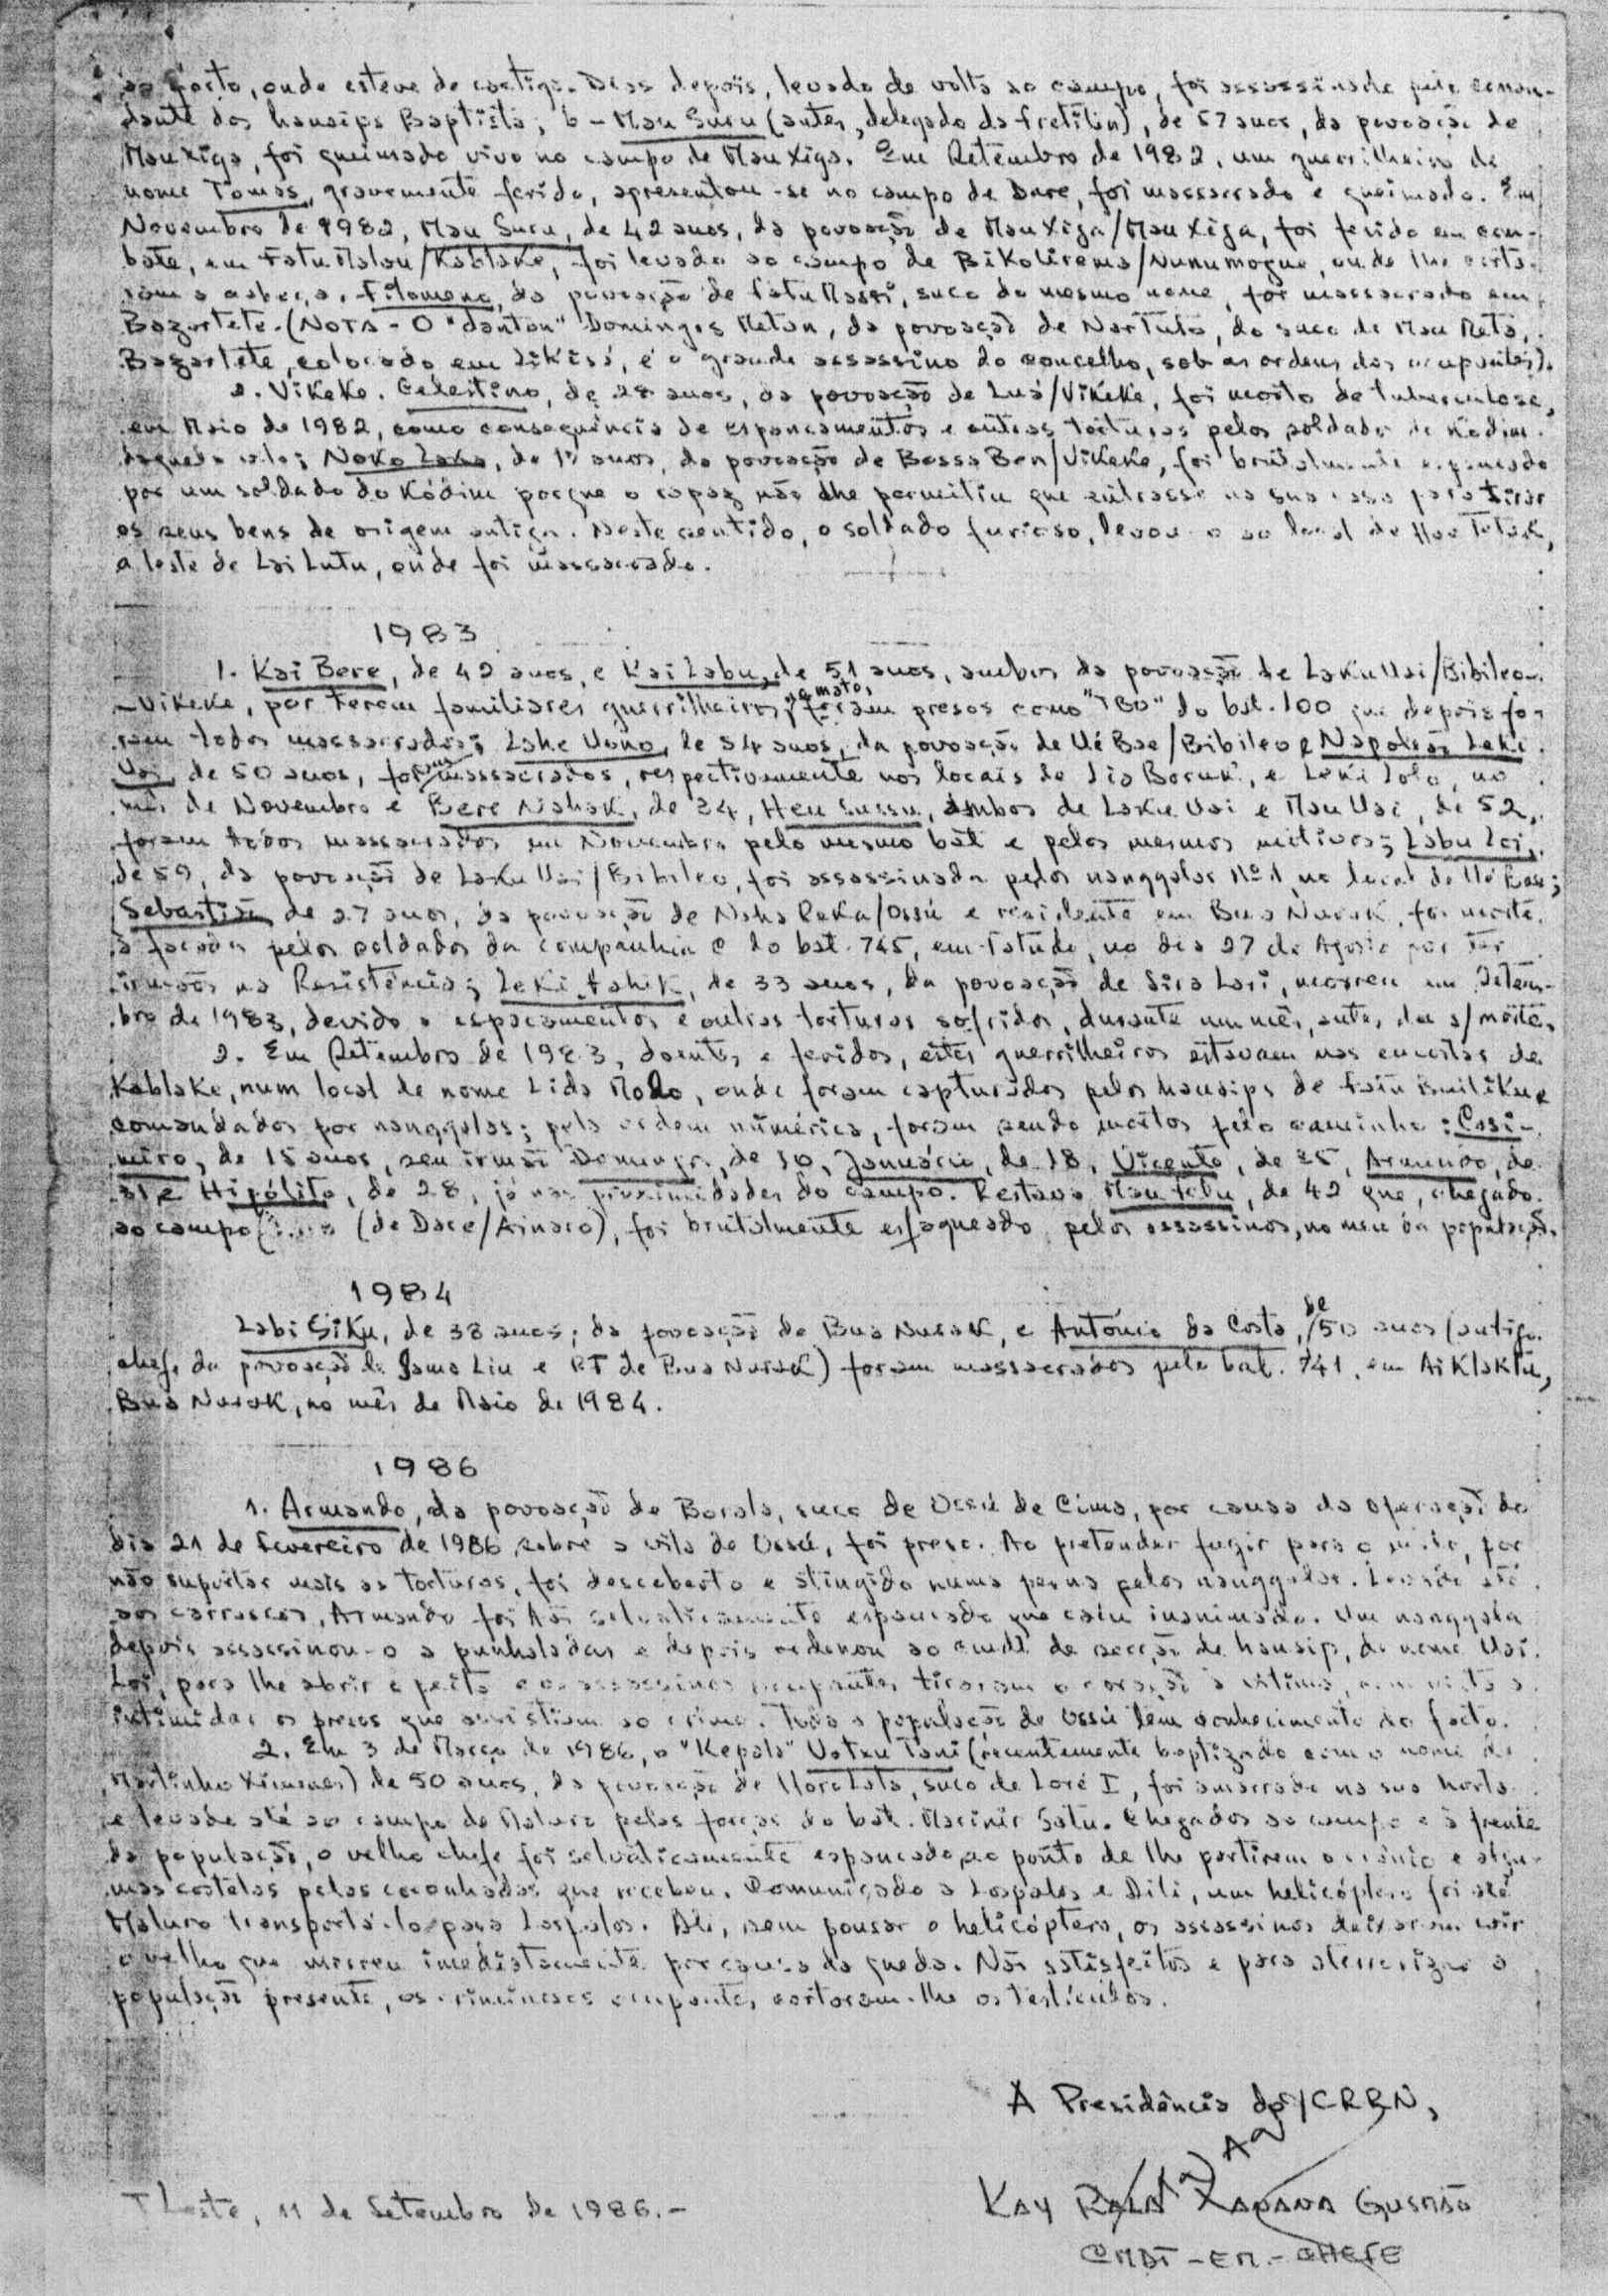 ao Posto, onde esteve de castigo. Dias depois, levado de volta ao campo, foi assassinado pelo coman-
dante dos hansips Baptista; 6 - Mau Suru (antes, delegado da Fretilin), de 57 anos, da povoação de
Mau Xiga, foi queimado vivo no campo de Mau Xiga. Em Setembro de 1982, um guerrilheiro de
nome Tomas, gravemente ferido, apresentou-se no campo de Dare, foi massacrado e queimado. Em
Novembro de 1982, Mau Suru, de 42 anos, da povoação de Mau Xiga/Mau Xiga, foi ferido em com-
bate, em Fatu Malau/Kablake, foi levado ao campo de Bikolirema/Nunumogue, onde lhe corta-
ram a cabeça. Filomeno, da povoação de Fatu Massi, suco do mesmo nome, foi massacrado em
Bazartete. (NOTA - O "danton" Domingos Metan, da povoação de Nartuto, do suco de Mau Meta,
Bazartete, colocado em Likisá, é o grande assassino do concelho, sob as ordens dos ocupantes).
2. Vikeke. Celestino, de 28 anos, da povoação de Luá/Vikeke, foi morto de tuberculose,
em Maio de 1982, como consequência de espancamentos e outras torturas pelos soldados do Kódim
daquela vila; Noko Loko, de anos, da povoação de Bessa Ben/Vikeke, foi brutalmente espancado
por um soldado do Kódim porque o rapaz não lhe permitiu que entrasse na sua casa para tirar
os seus bens de origem antiga. Neste sentido, o soldado furioso, levou-o ao local de
a leste de Lai Lutu, onde foi massacrado.
1983
1. Kai Bere, de 42 anos, e Kai Labu, de 51 anos, ambos da povoação de Laku Uai/Bibileo-
-Vikeke, por terem familiares guerrilheiros, no mato, foram presos como "TBO" do bat. 100 que depois fo-
ram todos massacrados; Lake Uono, de 54 anos, da povoação de Ué Bae/Bibileo e Napoleão Leki
Uai, de 50 anos, foram massacrados, respectivamente nos locais de Lia Boruk, e Leki Lolo, no
mês de Novembro e Bere Nahak, de 34, Heu Sussu, ambos de Laku Uai e Mau Uai, de 52,
foram todos massacrados em Novembro pelo mesmo bat e pelos mesmos motivos; Labu Loi,
de 59, da povoação de Laku Uai/Bibileo, foi assassinado pelos nanggalas Nº 1 no local de Ué Bae;
Sebastião de 27 anos, da povoação de Naha Reka/Ossú e residente em Bua Nurak, foi morto
à facada pelos soldados da companhia C do bat. 745, em Fatudo, no dia 27 de Agosto por ter
irmãos na Resistência; Leki Tahik, de 33 anos, da povoação de Lira Lari, morreu em Setem-
bro de 1983, devido a espacamentos e outras torturas sofridos, durante um mês, antes da s/morte.
2. Em Setembro de 1983, doentes e feridos, estes guerrilheiros estavam nas encostas de
Kablake, num local de nome Lida Molo, onde foram capturados pelos hansips de Fatu Builiku e
comandados por nanggalas; pela ordem numérica, foram sendo mortos pelo caminho: Casi-
miro, de 15 anos, seu irmão Domingos, de 10, Januário, de 18, Vicente, de 25, Armando, de
31 e Hipólito, de 28, já nas proximidades do campo. Restava Mau Felu, de 42 que, chegado
ao campo (de Dare/Ainaro), foi brutalmente esfaqueado pelos assassinos, no meio da população.
1984
Labi Siku, de 38 anos, da povoação de Bua Nurak, e António da Costa, de 50 anos (antigo
chefe da povoação de Jama Liu e RT de Bua Nurak) foram massacrados pelo bat. 741, em Aiklaktu,
Bua Nurak, no mês de Maio de 1984.
1986
1. Armando, da povoação de Borala, suco de Ossú de Cima, por causa da operação do
dia 21 de Fevereiro de 1986 sobre a vila de Ossú, foi preso. Ao pretender fugir para o mato, por
não suportar mais as torturas, foi descoberto e atingido numa perna pelos nanggalas. Levado até
aos carrascos, Armando foi tão selvaticamente espancado que caiu inanimado. Um nanggala
depois assassinou-o a punhaladas e depois ordenou ao cmdt. de secção de hansip, de nome Uai
Loi, para lhe abrir o peito e os assassinos ocupantes tiraram o coração à vítima, com vista a
intimidar os presos que assistiam ao crime. Toda a população de Ossú tem conhecimento do facto.
2. Em 3 de Março de 1986, o "Kepala" Uatxu Tani (recentemente baptizado com o nome de
Martinho Ximenes) de 50 anos, da povoação de Horo Lata, suco de Loré I, foi amarrado na sua horta
e levado até ao campo de Maluro pelas forças do bat. Marinir Satu. Chegados ao campo e à frente
da população, o velho chefe foi selvaticamente espancado, ao ponto de lhe partirem o crânio e algu-
mas costelas pelas coronhadas que recebeu. Comunicado a Lospalos e Dili, um helicóptero foi até
Maluro transportá-lo para Lospalos. Ali, sem pousar o helicóptero, os assassinos deixaram cair
o velho que morreu imediatamente por causa da queda. Não satisfeitos e para aterrorizar a
população presente, os criminosos ocupantes cortaram-lhe os testículos.
A Presidência do/CRRN,
T Leste, 11 de Setembro de 1986.-
KAY RALA XANANA GUSMÃO
CMDT-EM-CHEFE